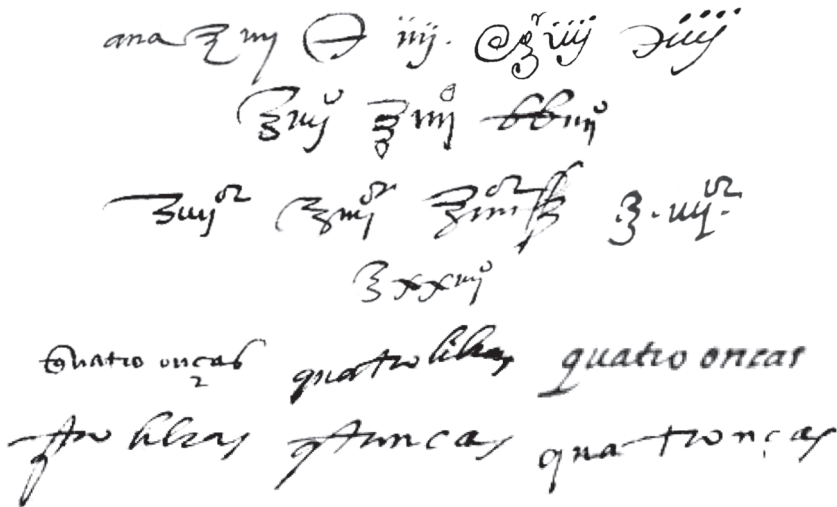 ana ℥ iiij ℈ iiij. ℥ iiij ℈ iiij
℥iiijº ℥iiijº ℔iiijº
℥iiijºʳ ℥iiijºʳ ℥iiijºʳ ß ℥.iiijºʳ.
℥xxiiijº
Quatro onças quatro libras quatro oncas
qtro libras qtroncas quatronças